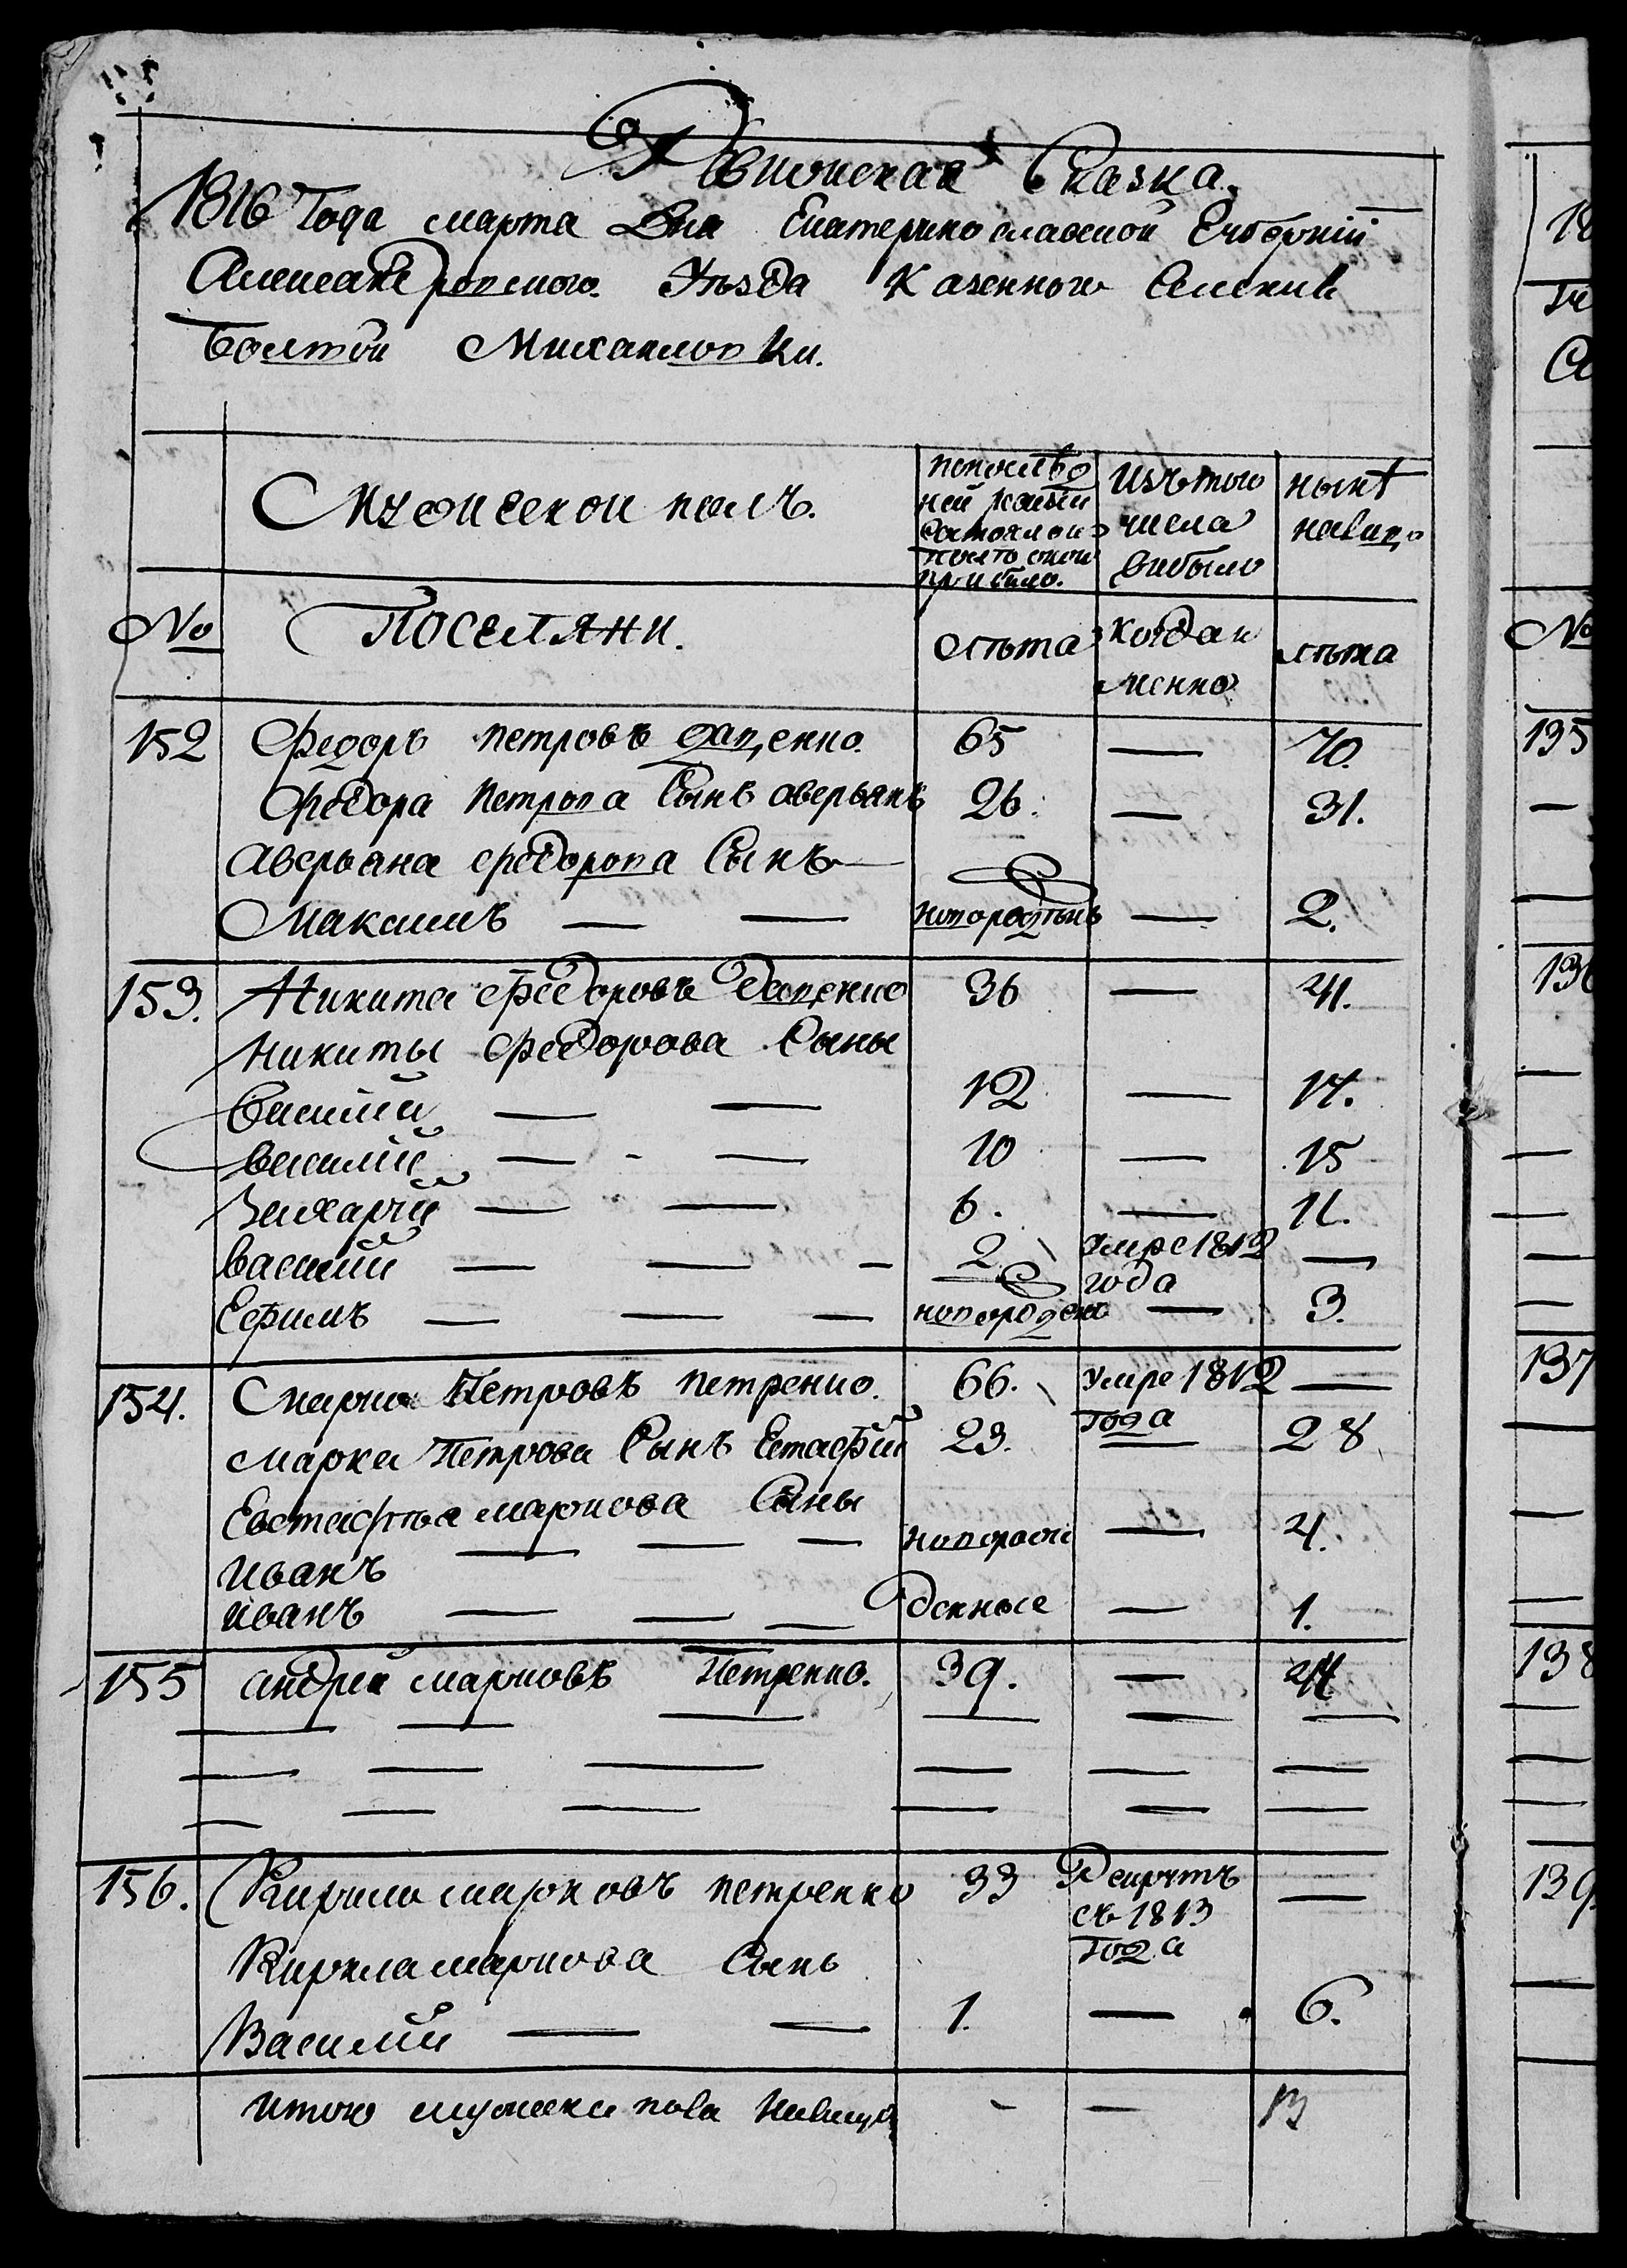 Ревижская Сказка.
1816 Года марта Дня Екатеринославской Губернии
Александровского Уѣзда Казенного Селения
Болшой Михайловки.
Мужеской полъ.
попослѣд
ней ревизии
состояло и
послѣ оной
прибыло.
Изъ того
числа
выбыло
нынѣ
налицо
№
Поселяни.
Лѣта
Когда и
менно
лѣта
152 Федоръ петровъ даценко. 65 — 70.
Федора петрова Сынъ аверьянъ 26. — 31.
Аверьяна федорова Сынъ —
Максимъ — — новорожденъ — 2.
153. Никита федоровъ Даценко 36 — 41.
Никиты федорова Сыны
Василий — — 12 — 17.
василий — - — 10 — 15
Захарий — — 6. — 11.
василий — — — 2 умре 1812 года —
Ефимъ — — — новорожденъ — 3.
154. Марко Петровъ петренко. 66. умре 1812 года —
марка Петрова Сынъ Естафий 23. — 28
Евстафъя маркова Сыны
Иванъ — — — новорож — 4.
иванъ — — — денные — 1.
155 андрей марковъ Петренко. 39. — 44
— — — — — —
— — — — — —
— — — — — —
156. Кирило марковъ петренко 33 —
съ 1813
Года
Кирила маркова Сынъ
Василий — — 1. — 6.
итого мужеска пола налицо - — 13
№
135
136
137
138
139